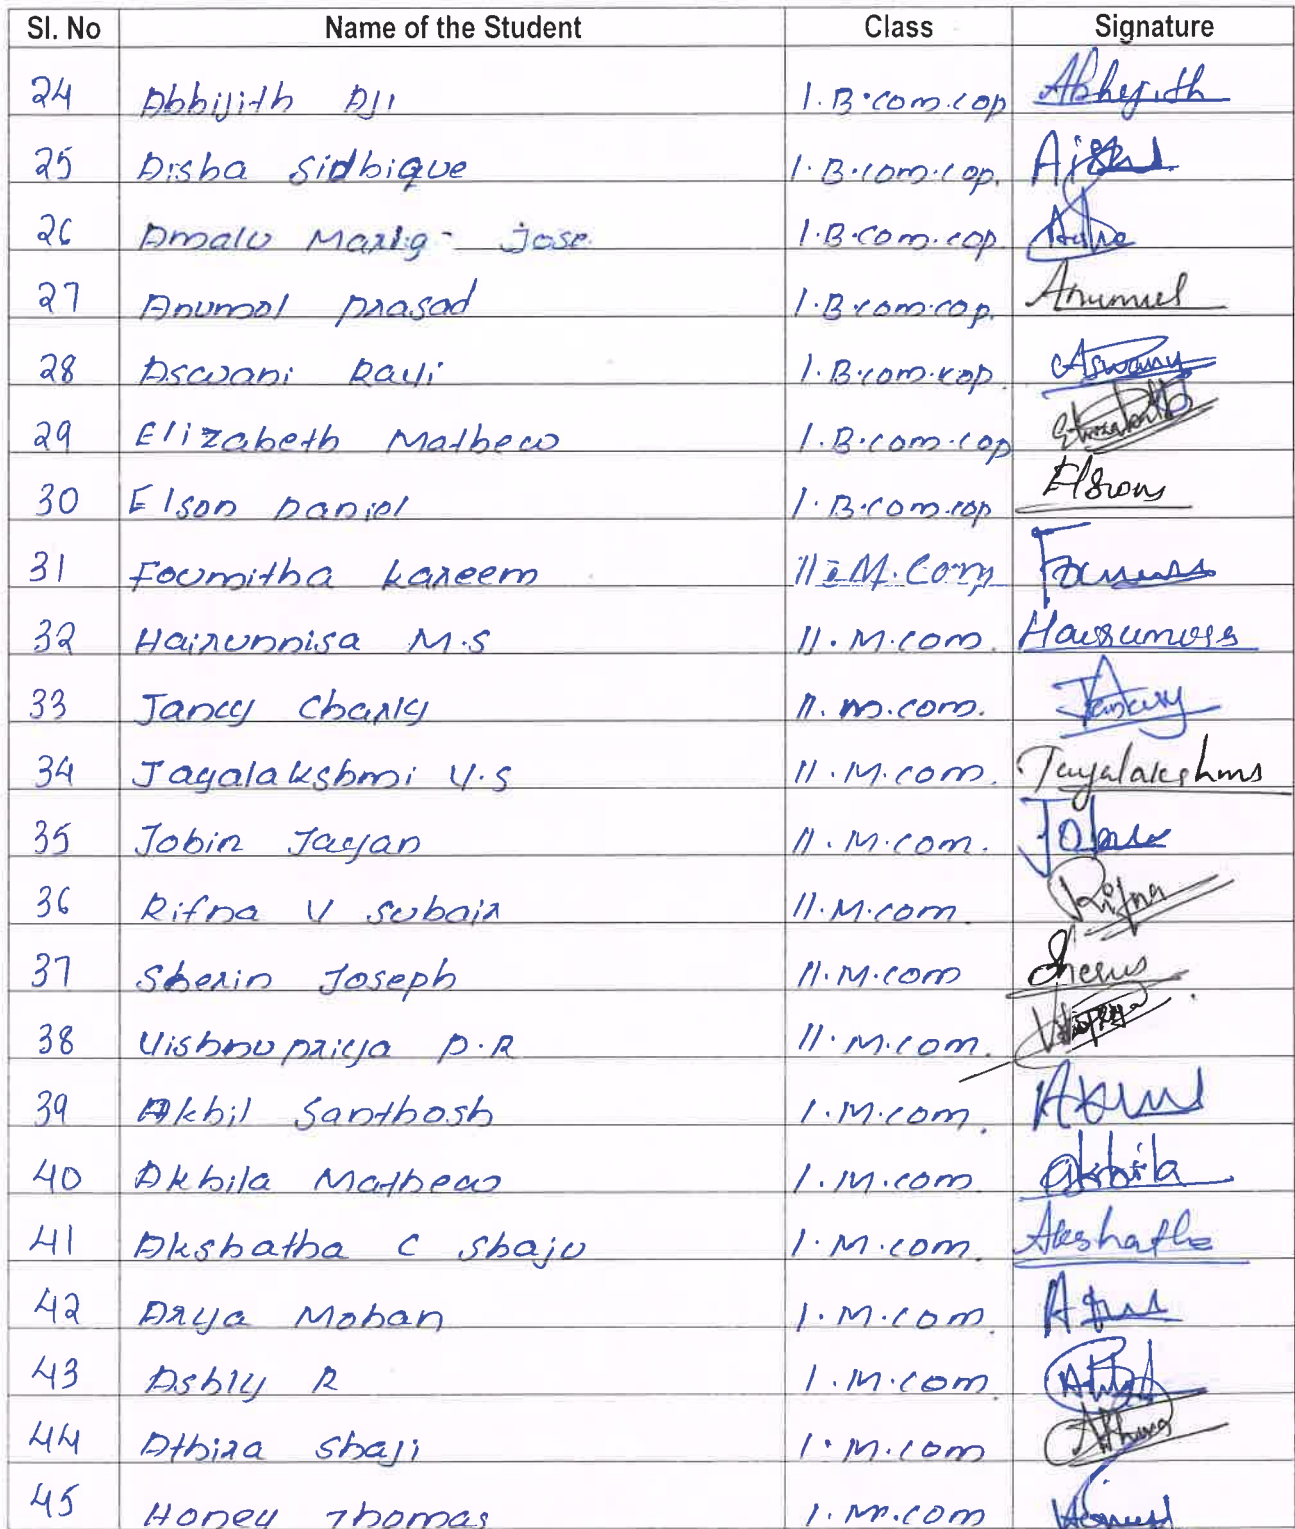 Sl. No Name of the Student Class Signature
24 Abhijith Aji I.B.com.cop Abhijith
25 Aisha Sidhique I.B.com.cop.
26 Amalu Maria Jose I.B.com.cop
27 Anumol Prasad I.B.com.cop. Anumol
28 Aswani Ravi I.B.com.cop Aswany
29 Elizabeth Mathew I.B.com.cop Elizabeth
30 Elson Daniel I.B.com.cop
31 Foumitha Kareem II M.Com
32 Hairunnisa M.S II.M.com.
33 Jancy Charly II.M.com.
34 Jayalakshmi V.S II.M.com. Jayalakshmi
35 Jobin Jayan II.M.com.
36 Rifna V Subair II.M.com. Rifna
37 Sherin Joseph II.M.com
38 Vishnupriya P.R II.M.com.
39 Akhil Santhosh I.M.com.
40 Akhila Mathew I.M.com. akhila
41 Akshatha C Shaju I.M.com. Akshatha
42 Arya Mohan I.M.com.
43 Ashly R I.M.com.
44 Athira Shaji I.M.com
45 Honey Thomas I.M.com